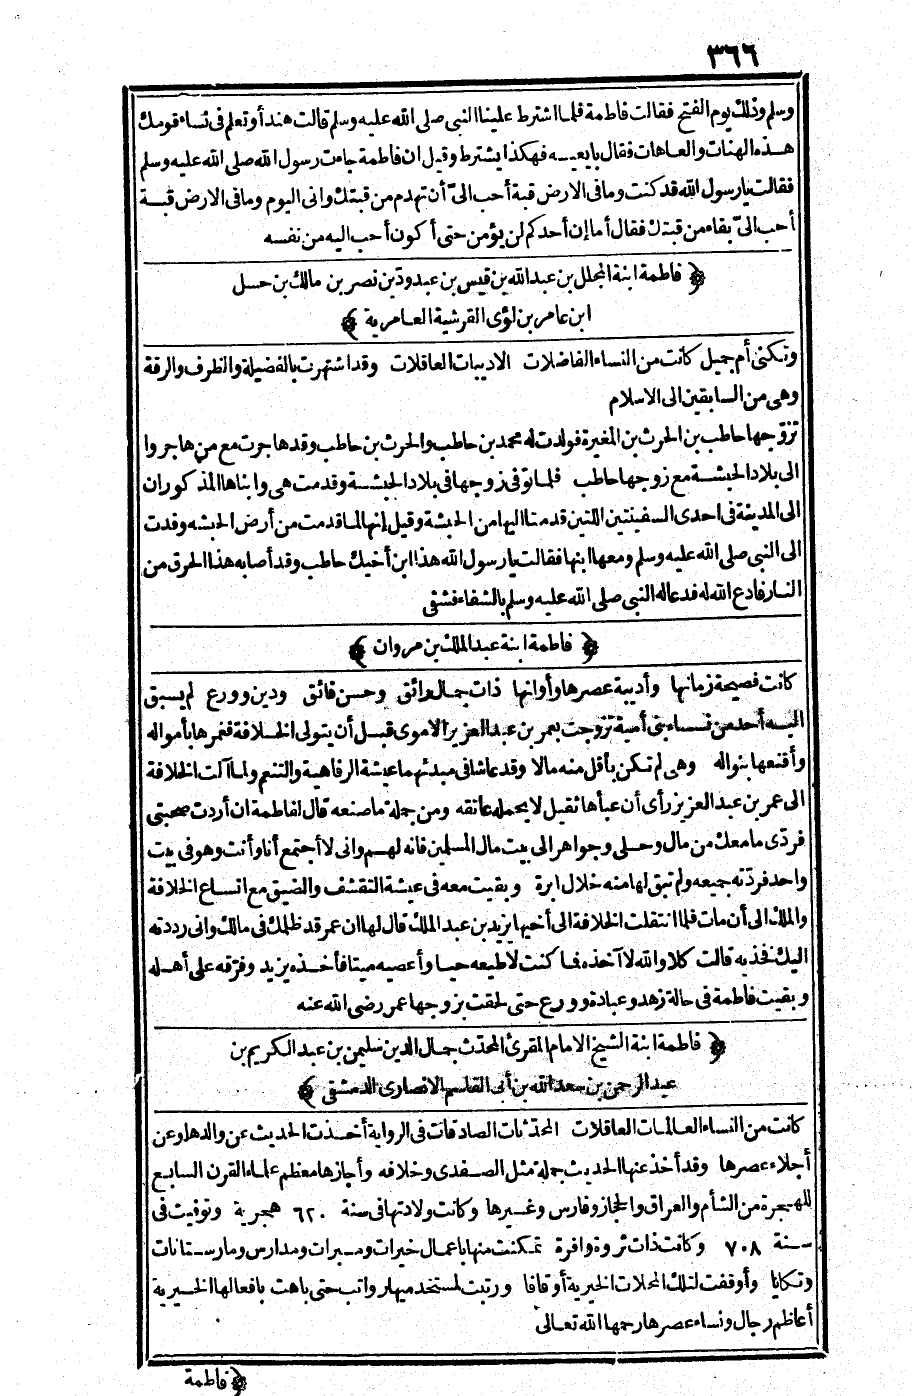 ٣٦٦
وسلم وذلك يوم الفتح فقالت فاطمة فلما اشترط علينا النبي صلى الله عليه وسلم قالت هند أو تعلم فى نساء قومك
هذه الهنات والعاهات فقال بايعيه فهكذا يشترط وقيل ان فاطمة جاءت رسول الله صلى الله عليه وسلم
فقالت يا رسول الله قد كنت وما فى الارض قبة أحب الىّ أن تهدم من قبتك وانى اليوم وما فى الارض قبة
أحب الىّ بقاء من قبتك فقال أما إن أحدكم لن يؤمن حتى أكون أحب اليه من نفسه
﴿ فاطمة ابنة المجلل بن عبدالله بن قيس بن عبدودّ بن نصر بن مالك بن حسل
ابن عامر بن لؤى القرشية العامرية ﴾
وتكنى أم جميل كانت من النساء الفاضلات الاديبات العاقلات وقد اشتهرت بالفضيلة والظرف والرقة
وهى من السابقين الى الاسلام
تزوّجها حاطب بن الحرث بن المغيرة فولدت له محمد بن حاطب والحرث بن حاطب وقد هاجرت مع من هاجروا
الى بلاد الحبشة مع زوجها حاطب فلما توفى زوجها فى بلاد الحبشة وقدمت هى وابناها المذكوران
الى المدينة فى احدى السفينتين اللتين قدمتا اليها من الحبشة وقيل إنها لما قدمت من أرض الحبشه وفدت
الى النبى صلى الله عليه وسلم ومعها ابنها فقالت يا رسول الله هذا ابن أخيك حاطب وقد أصابه هذا الحرق من
النار فادع الله له فدعا له النبى صلى الله عليه وسلم بالشفاء فشفى
﴿ فاطمة ابنة عبدالملك بن مروان ﴾
كانت فصيحة زمانها وأديبة عصرها وأوانها ذات جمال رائق وحسن فائق ودين وورع لم يسبق
اليه أحد من نساء بنى أمية تزوجت بعمر بن عبدالعزيز الاموى قبل أن يتولى الخلافة فغمرها بأمواله
وأقنعها بنواله وهى لم تكن بأقل منه مالا وقد عاشا فى مبدئهما عيشة الرفاهية والتنعم ولما آلت الخلافة
الى عمر بن عبدالعزيز رأى أن عبأها ثقيل لا يحمله عاتقه ومن جملة ما صنعه قال لفاطمة ان أردت صحبتى
فردّى ما معك من مال وحلى وجواهر الى بيت مال المسلمين فانه لهم وانى لا أجتمع أنا وأنت وهو فى بيت
واحد فردّته جميعه ولم تبق لها منه خلال ابرة وبقيت معه فى عيشة التقشف والضيق مع اتساع الخلافة
والملك الى أن مات فلما انتقلت الخلافة الى أخيها يزيد بن عبد الملك قال لها ان عمر قد ظلمك فى مالك وانى رددته
اليك فخذيه قالت كلا والله لا آخذه فما كنت لاطيعه حيا وأعصيه ميتا فأخذه يزيد وفرّقه على أهله
وبقيت فاطمة فى حالة زهد وعبادة وورع حتى لحقت بزوجها عمر رضى الله عنه
﴿ فاطمة ابنة الشيخ الامام المقرئ المحدّث جمال الدين سليمن بن عبدالكريم بن
عبدالرحمن بن سعدالله بن أبى القاسم الانصارى الدمشقى ﴾
كانت من النساء العالمات العاقلات المحدّثات الصادقات فى الرواية أخذت الحديث عن والدها وعن
أجلاء عصرها وقد أخذ عنها الحديث جملة مثل الصفدى وخلافه وأجازها معظم علماء القرن السابع
للهجرة من الشأم والعراق والحجاز وفارس وغيرها وكانت ولادتها فى سنة ٦٢٠ هجرية وتوفيت فى
سنة ٧٠٨ وكانت ذات ثروة وافرة تمكنت منها باعمال خيرات ومبرات ومدارس ومارستانات
وتكايا وأوقفت لتلك المحلات الخيرية أوقافا ورتبت لمستخدميها رواتب حتى باهت بافعالها الخيرية
أعاظم رجال ونساء عصرها رحمها الله تعالى
﴿ فاطمة